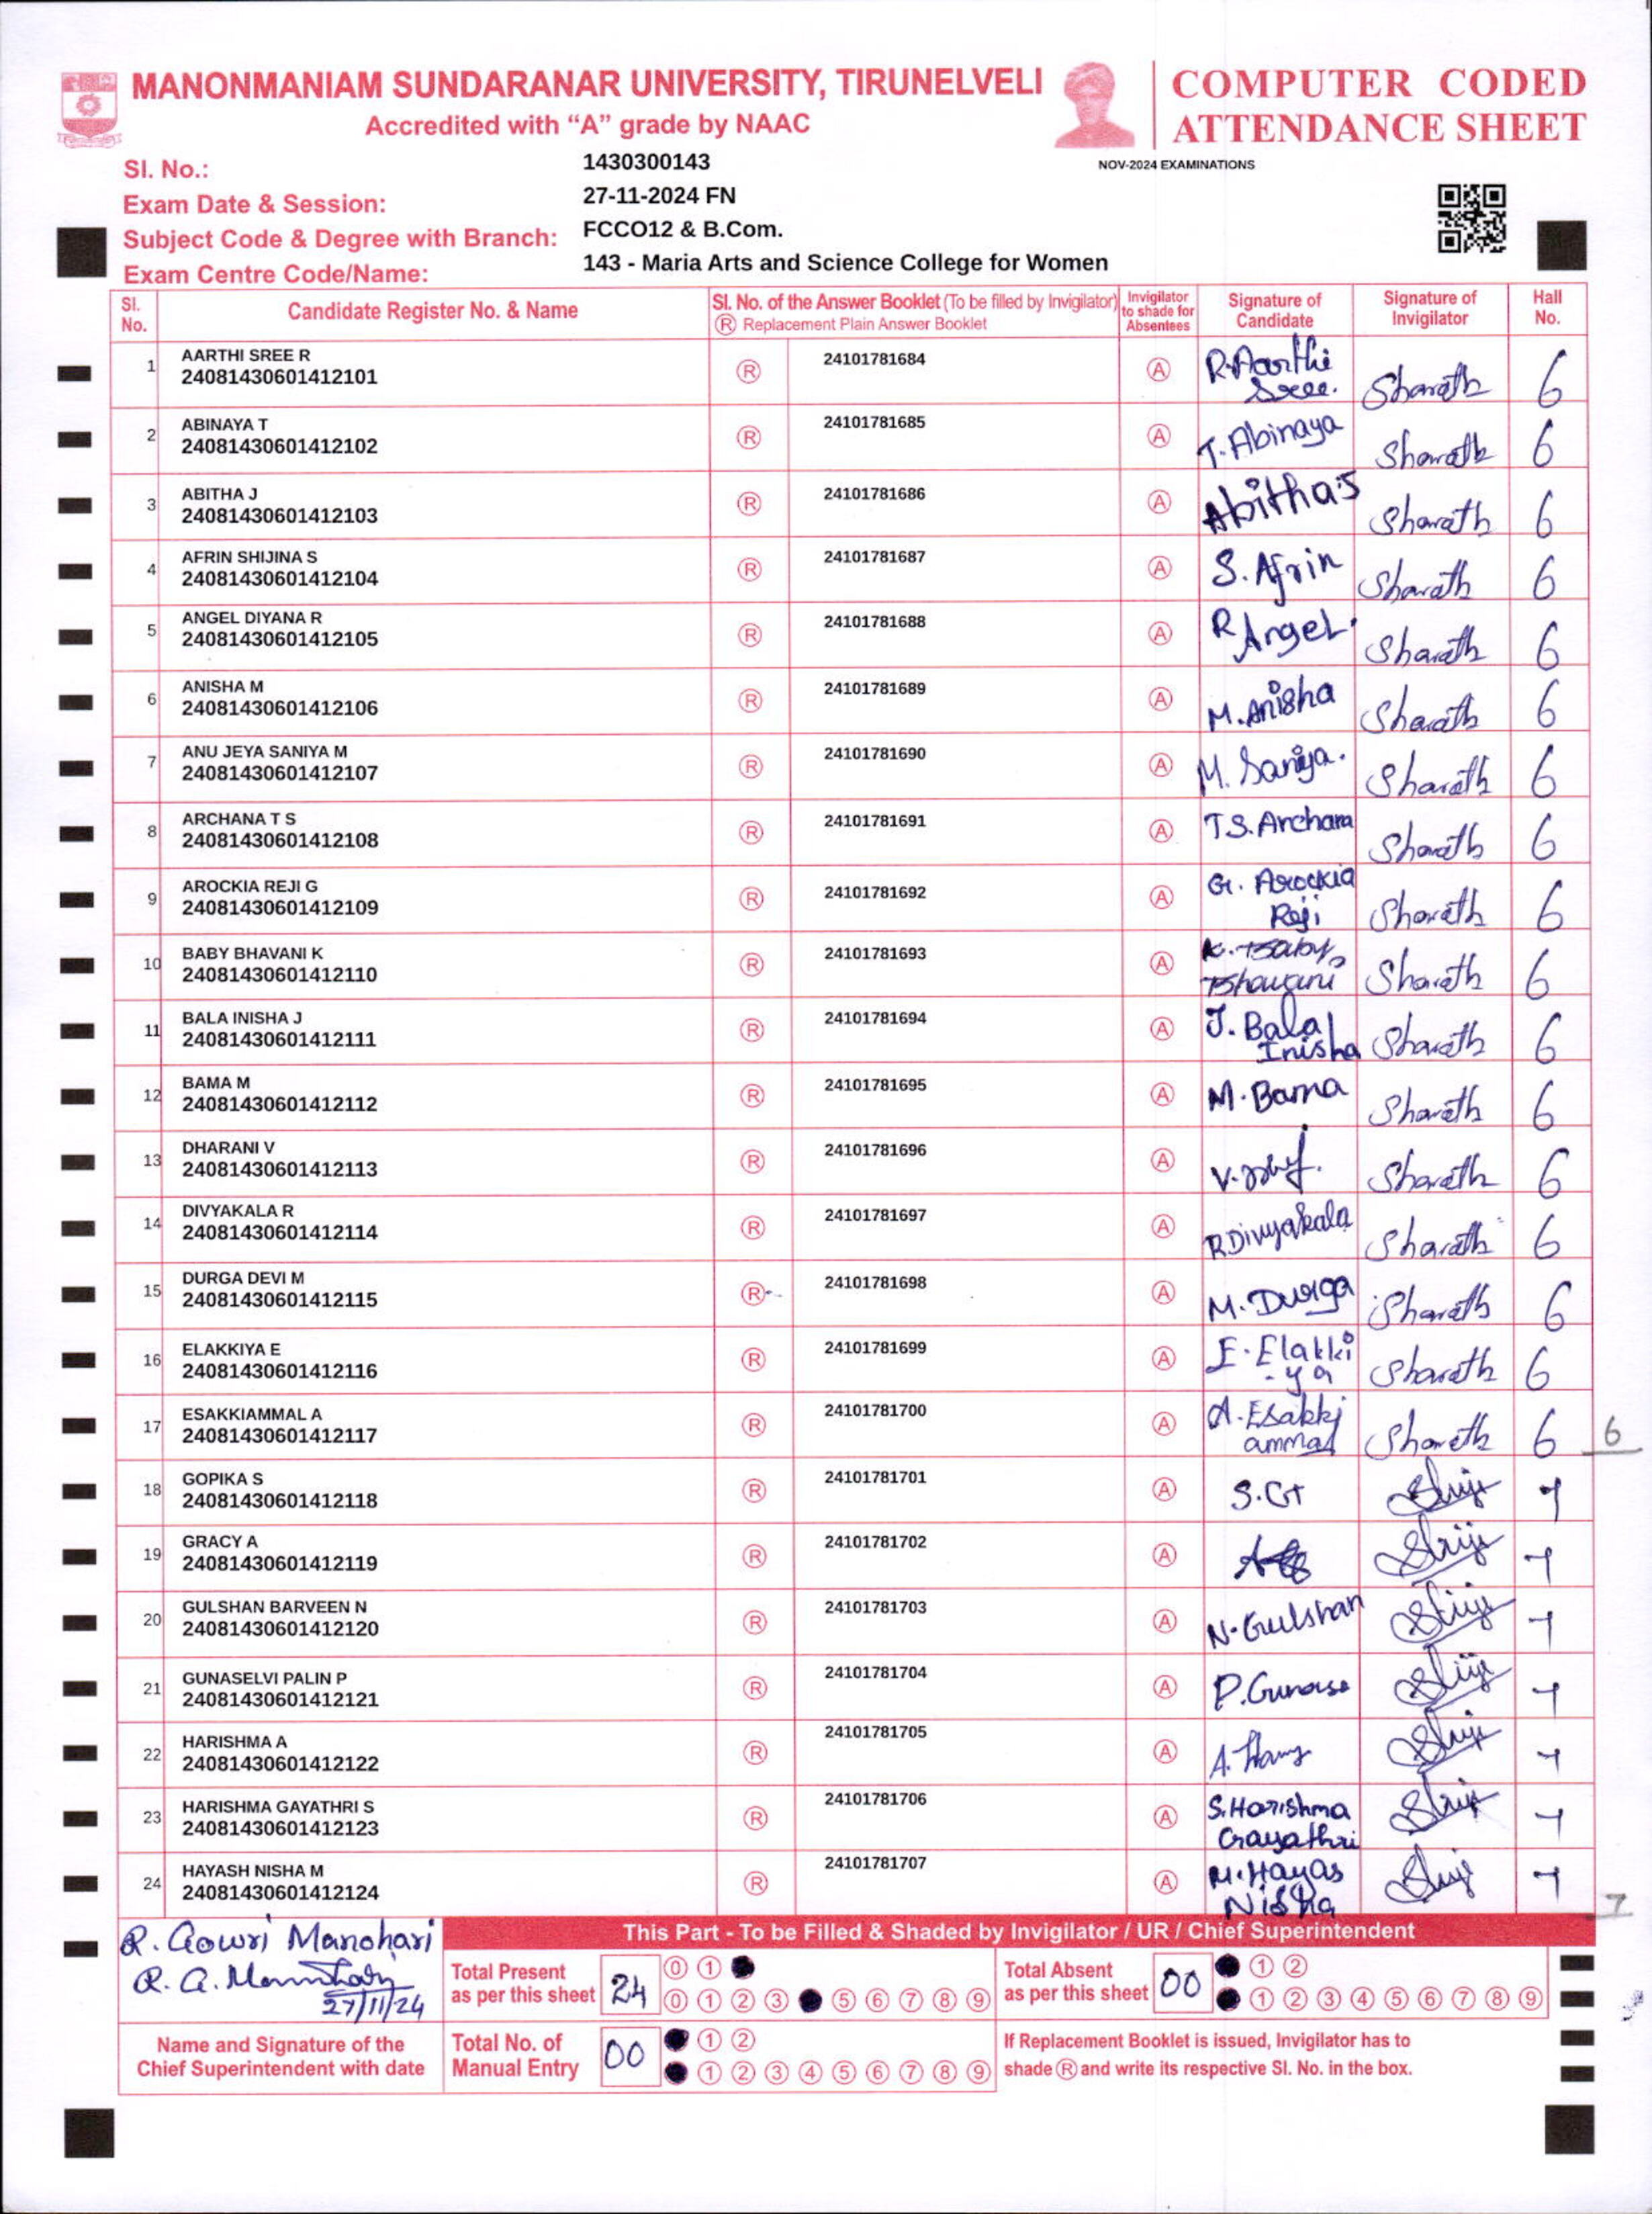 MANONMANIAM SUNDARANAR UNIVERSITY, TIRUNELVELI
Accredited with “A” grade by NAAC
COMPUTER CODED
ATTENDANCE SHEET
NOV-2024 EXAMINATIONS
Sl. No.: 1430300143
Exam Date & Session: 27-11-2024 FN
Subject Code & Degree with Branch: FCCO12 & B.Com.
Exam Centre Code/Name: 143 - Maria Arts and Science College for Women
Sl. No. Candidate Register No. & Name Sl. No. of the Answer Booklet (To be filled by Invigilator) Ⓡ Replacement Plain Answer Booklet Invigilator to shade for Absentees Signature of Candidate Signature of Invigilator Hall No.
1 AARTHI SREE R
24081430601412101 Ⓡ 24101781684 Ⓐ R.Aarthi Sree. Sharath 6
2 ABINAYA T
24081430601412102 Ⓡ 24101781685 Ⓐ T.Abinaya Sharath 6
3 ABITHA J
24081430601412103 Ⓡ 24101781686 Ⓐ Abitha.J Sharath 6
4 AFRIN SHIJINA S
24081430601412104 Ⓡ 24101781687 Ⓐ S.Afrin Sharath 6
5 ANGEL DIYANA R
24081430601412105 Ⓡ 24101781688 Ⓐ R Angel. Sharath 6
6 ANISHA M
24081430601412106 Ⓡ 24101781689 Ⓐ M.Anisha Sharath 6
7 ANU JEYA SANIYA M
24081430601412107 Ⓡ 24101781690 Ⓐ M. Saniya. Sharath 6
8 ARCHANA T S
24081430601412108 Ⓡ 24101781691 Ⓐ T.S.Archana Sharath 6
9 AROCKIA REJI G
24081430601412109 Ⓡ 24101781692 Ⓐ G. Arockia Reji Sharath 6
10 BABY BHAVANI K
24081430601412110 Ⓡ 24101781693 Ⓐ K. Baby Bhavani Sharath 6
11 BALA INISHA J
24081430601412111 Ⓡ 24101781694 Ⓐ J. Bala Inisha Sharath 6
12 BAMA M
24081430601412112 Ⓡ 24101781695 Ⓐ M.Bama Sharath 6
13 DHARANI V
24081430601412113 Ⓡ 24101781696 Ⓐ Sharath 6
14 DIVYAKALA R
24081430601412114 Ⓡ 24101781697 Ⓐ R.Divyakala Sharath 6
15 DURGA DEVI M
24081430601412115 Ⓡ 24101781698 Ⓐ M. Durga Sharath 6
16 ELAKKIYA E
24081430601412116 Ⓡ 24101781699 Ⓐ E. Elakki-ya Sharath 6
17 ESAKKIAMMAL A
24081430601412117 Ⓡ 24101781700 Ⓐ A.Esakki ammal Sharath 6 6
18 GOPIKA S
24081430601412118 Ⓡ 24101781701 Ⓐ S.G Shiji 7
19 GRACY A
24081430601412119 Ⓡ 24101781702 Ⓐ Shiji 7
20 GULSHAN BARVEEN N
24081430601412120 Ⓡ 24101781703 Ⓐ N.Gulshan Shiji 7
21 GUNASELVI PALIN P
24081430601412121 Ⓡ 24101781704 Ⓐ P.Gunase Shiji 7
22 HARISHMA A
24081430601412122 Ⓡ 24101781705 Ⓐ Shiji 7
23 HARISHMA GAYATHRI S
24081430601412123 Ⓡ 24101781706 Ⓐ S.Harishma Gayathri Shiji 7
24 HAYASH NISHA M
24081430601412124 Ⓡ 24101781707 Ⓐ M.Hayas Nisha Shiji 7 7
This Part - To be Filled & Shaded by Invigilator / UR / Chief Superintendent
R. Gowri Manohari
27/11/24
Name and Signature of the Chief Superintendent with date
Total Present as per this sheet 24
0 1
0 1 2 3 5 6 7 8 9
Total Absent as per this sheet 00
1 2
1 2 3 4 5 6 7 8 9
Total No. of Manual Entry 00
1 2
1 2 3 4 5 6 7 8 9
If Replacement Booklet is issued, Invigilator has to
shade Ⓡ and write its respective Sl. No. in the box.